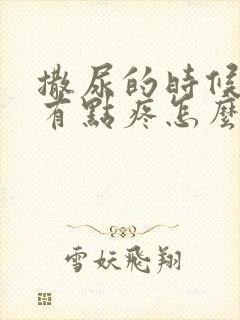 撒尿的時候
有點疼怎麼
雪妖飛翔